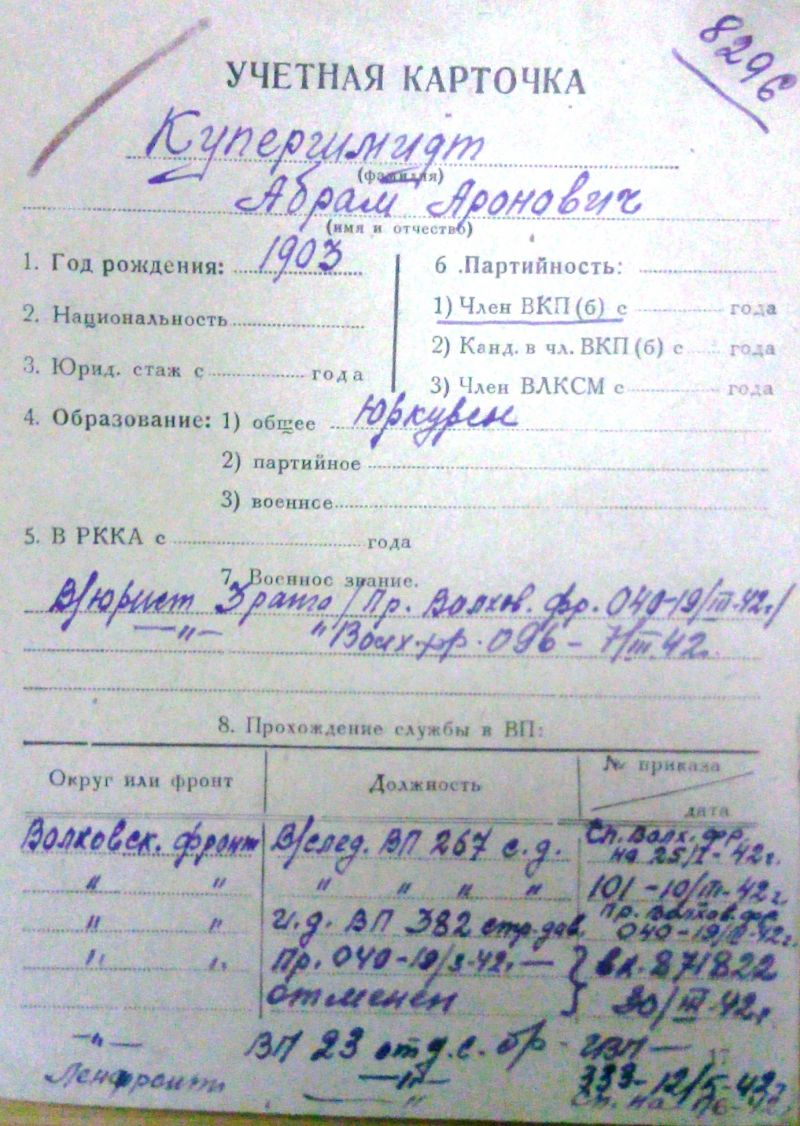 8296
УЧЕТНАЯ КАРТОЧКА
Купергшмидт
(фамилия)
Абрам Аронович
(имя и отчество)
1. Год рождения: 1903
2. Национальность
3. Юрид. стаж с года
6 .Партийность:
1) Член ВКП(б) с года
2) Канд. в чл. ВКП(б) с года
3) Член ВЛКСМ с года
4. Образование: 1) общее Юркурсы
2) партийное
3) военное
5. В РККА с года
7. Военное звание.
В/юрист 3 ранга /Пр. Волхов. фр. 040-19/III-42г/
—"— " Волх.фр. 096 - 7/III 42г.
8. Прохождение службы в ВП:
Округ или фронт Должность № приказа дата
Волховск. фронт В/след. ВП 267 с.д. Сп. Волх. фр. на 25/I-42г.
" " " " " " 101-10/III-42г.
" " и.д. ВП 382 стр.див. Пр. Волхов.фр. 040-19/II-42г.
" " Пр. 040-19/3-42г.— } вх. 871822
отменен 30/III-42г.
—"— ВП 23 отд.с.бр - ГВП —
Ленфронт —"— 333-12/5-42г.
" Сп. на